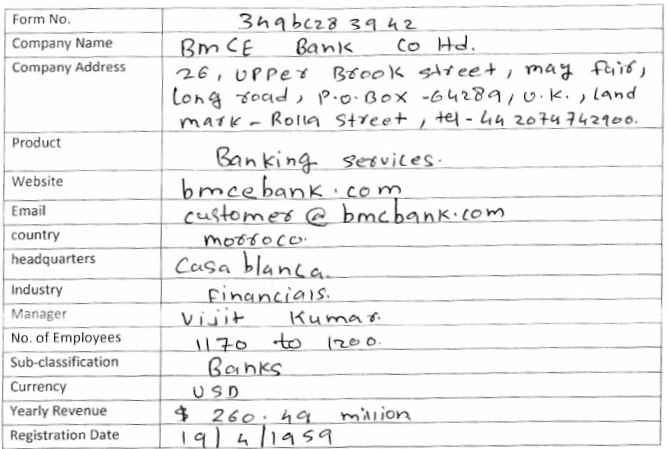 Form No. 349bc28 3942
Company Name BmCE Bank Co Hd.
Company Address 26, UPPer Brook street, may fair,
long road, P.O.Box -64289, U.K., land
mark - Rolla street, tel - 44 2074742900.
Product Banking services.
Website bmcebank.com
Email customer @ bmcbank.com
country morroco.
headquarters Casa blanca.
Industry Financials.
Manager Vijit Kumar.
No. of Employees 1170 to 1200.
Sub-classification Banks
Currency USD
Yearly Revenue $ 260.49 million
Registration Date 19/4/1959